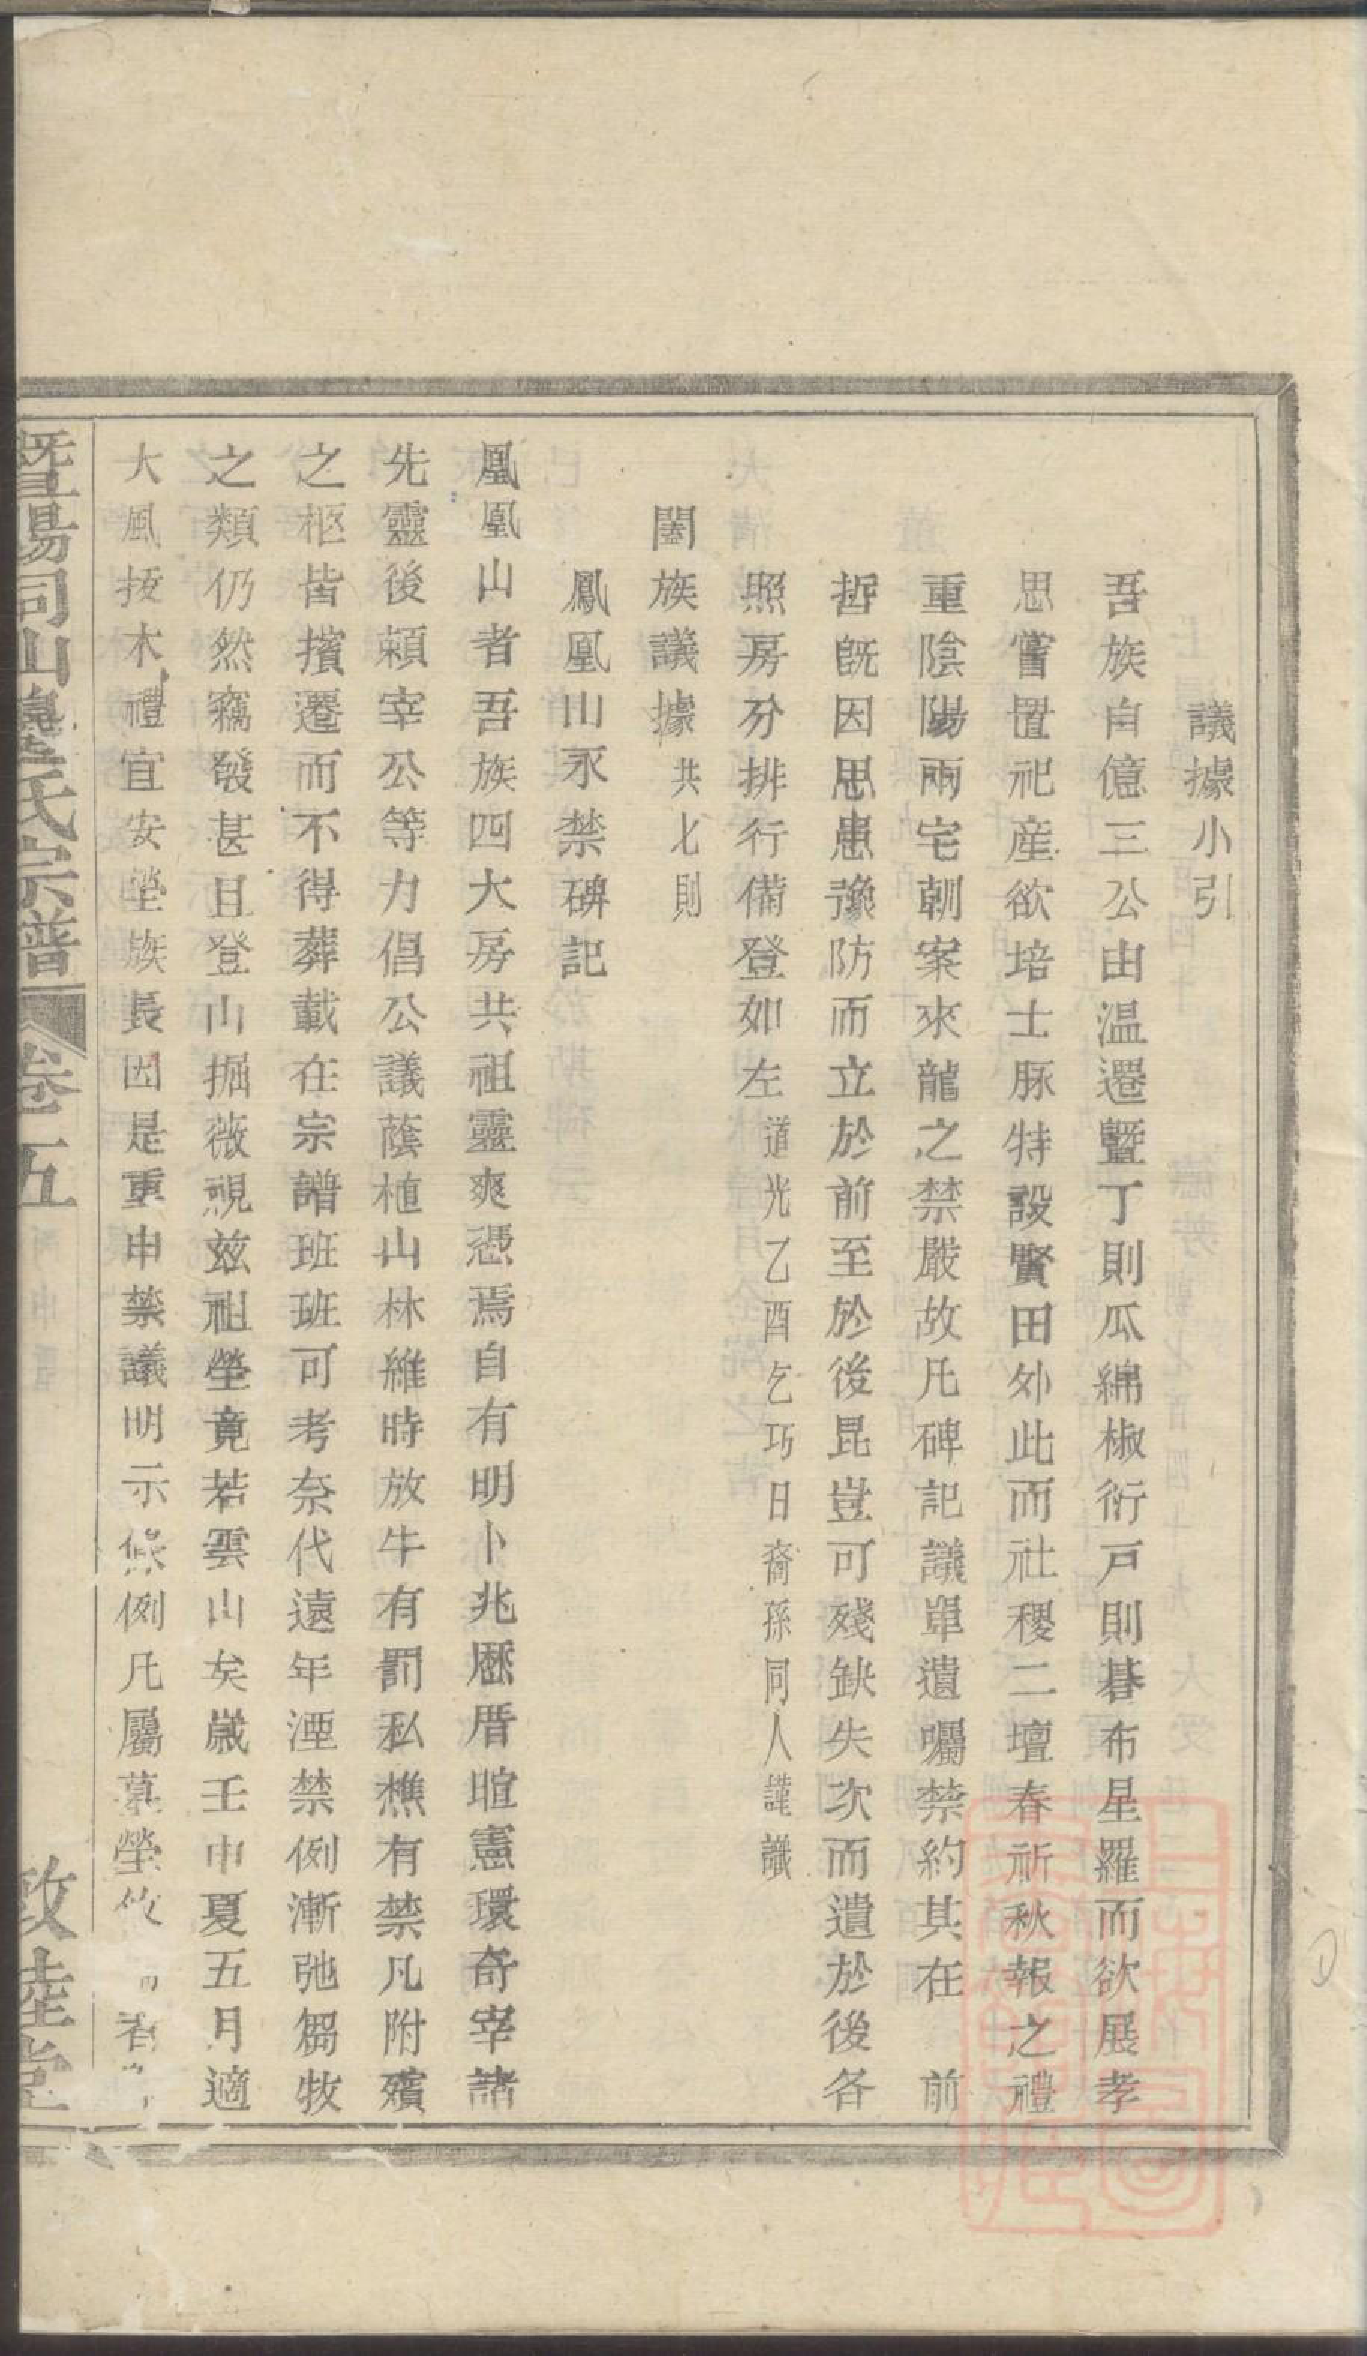 議據小引
吾族自億三公由溫遷暨丁則瓜綿椒衍戸則碁布星羅而欲展孝
思嘗置祀産欲培士豚特設賢田外此而社稷二壇春祈秋報之禮
重陰陽兩宅朝案來龍之禁嚴故凡碑記議單遺囑禁約其在　前
哲旣因思患豫防而立於前至於後昆豈可殘缺失次而遺於後各
照房分排行備登如左道光乙酉乞巧日裔孫同人謹識
闔族議據共七則
鳳凰山永禁碑記
凰凰山者吾族四大房共祖靈爽憑焉自有明卜兆歷厝暄憲環奇宰諸
先靈後頼宰公等力倡公議蔭植山林維時放牛有罰私樵有禁凡附殯
之柩皆擯遷而不得葬載在宗譜班班可考奈代遠年湮禁例漸弛芻牧
之類仍然竊發甚且登山掘薇視兹祖塋竟若雲山矣歲壬申夏五月適
大風拔木禮宜安塋族長因是重申禁議明示條例凡屬墓塋
暨陽同山邊氏宗譜　卷五　敦睦堂